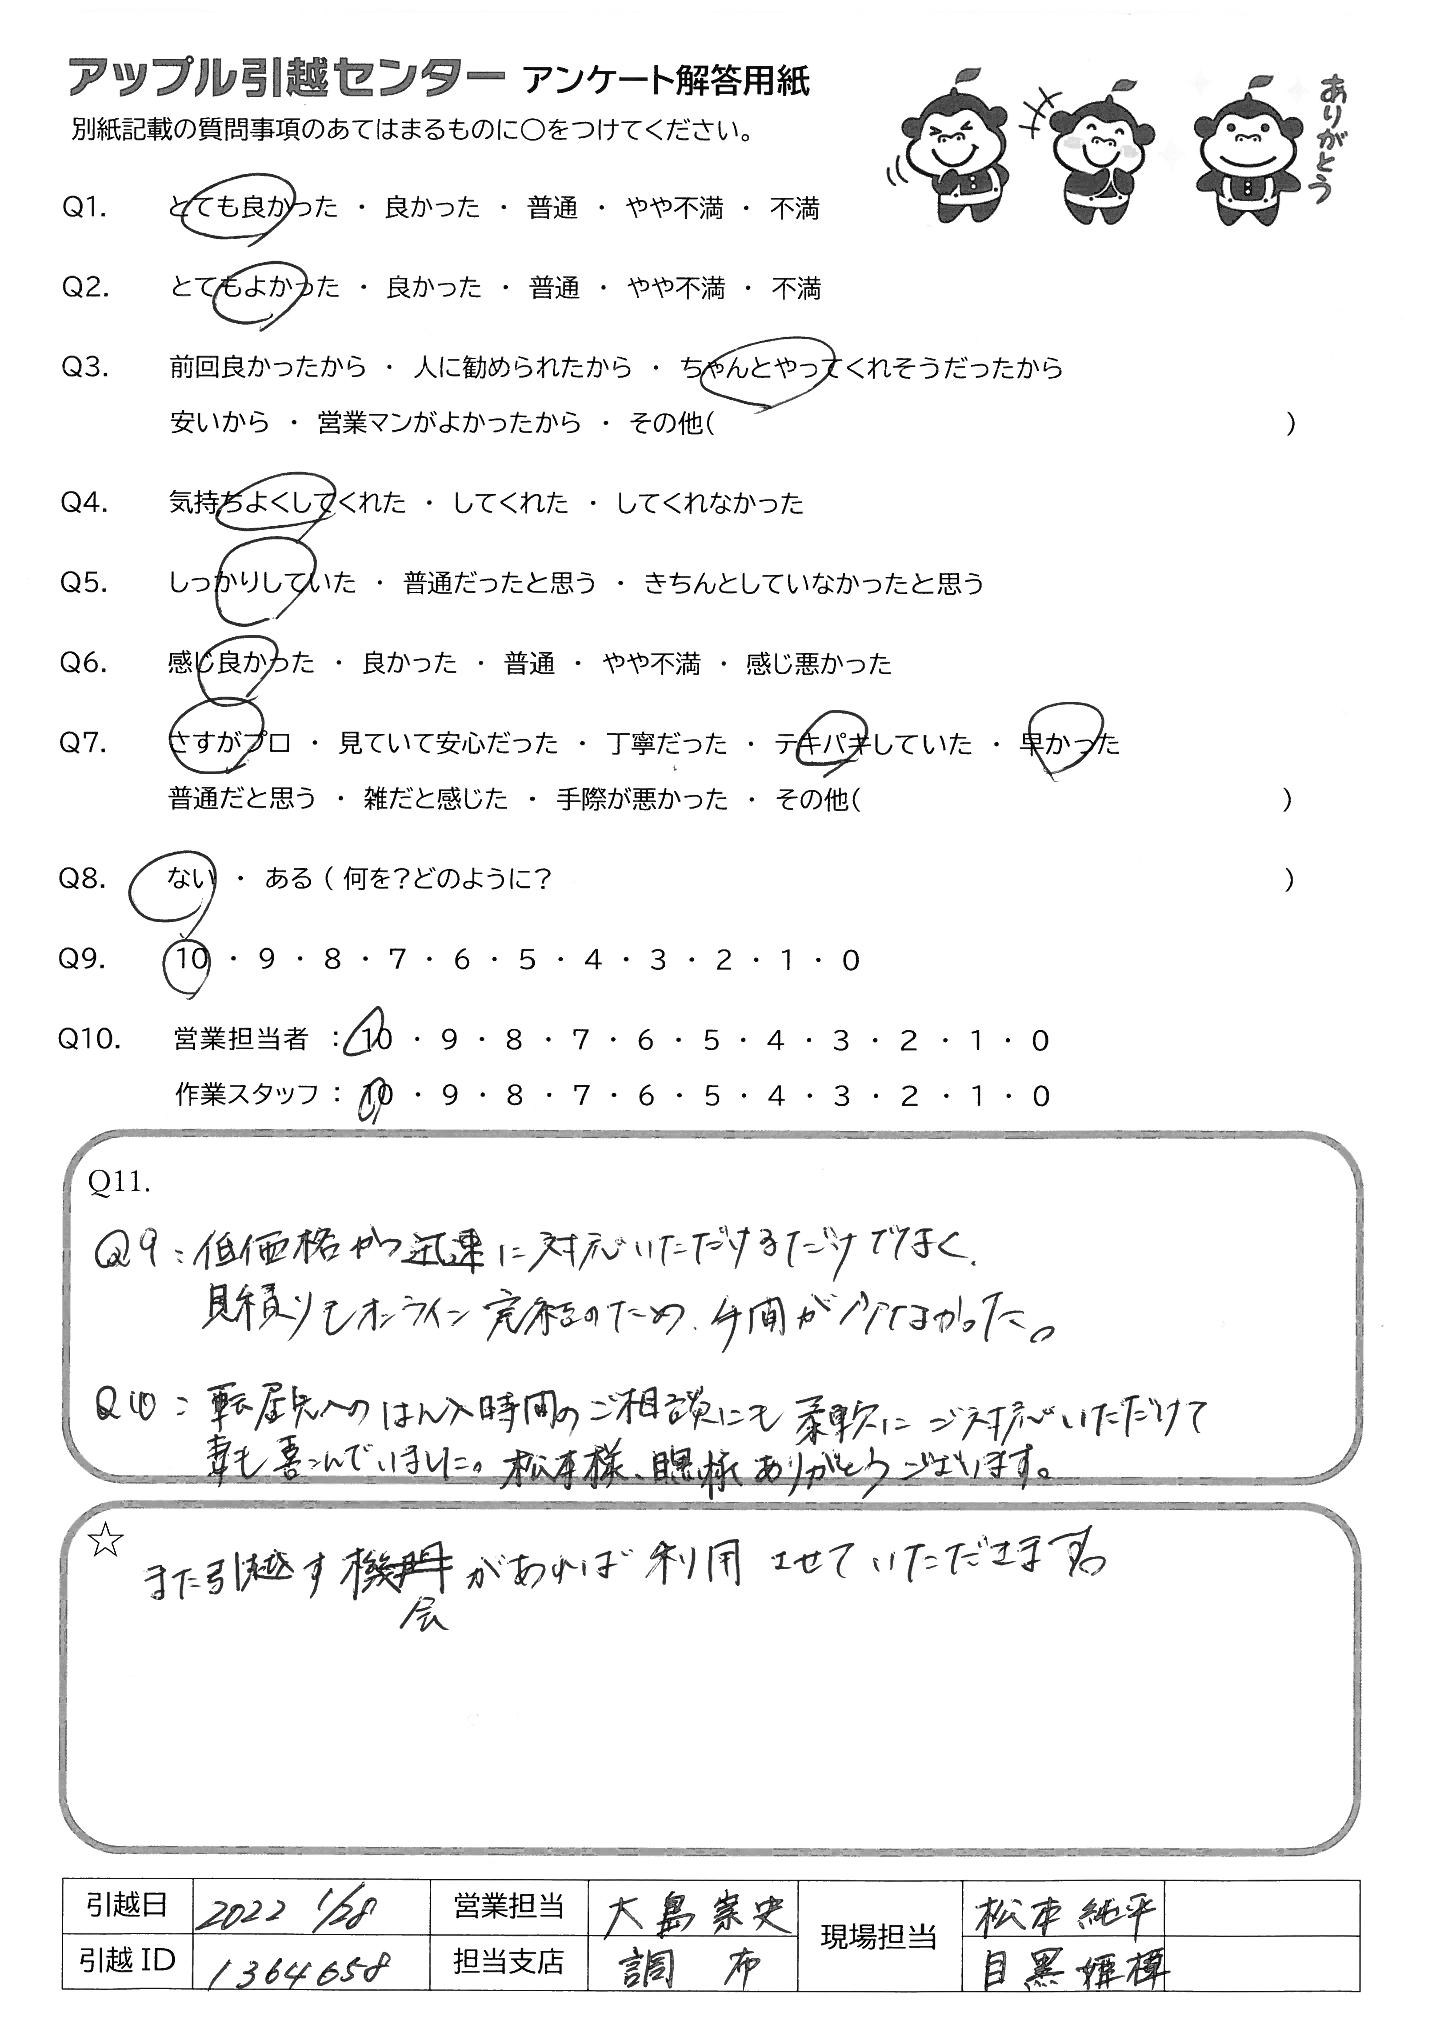 アップル引越センター アンケート解答用紙
ありがとう
別紙記載の質問事項のあてはまるものに〇をつけてください。
Q1. とても良かった ・ 良かった ・ 普通 ・ やや不満 ・ 不満
Q2. とてもよかった ・ 良かった ・ 普通 ・ やや不満 ・ 不満
Q3. 前回良かったから ・ 人に勧められたから ・ ちゃんとやってくれそうだったから
安いから ・ 営業マンがよかったから ・ その他( )
Q4. 気持ちよくしてくれた ・ してくれた ・ してくれなかった
Q5. しっかりしていた ・ 普通だったと思う ・ きちんとしていなかったと思う
Q6. 感じ良かった ・ 良かった ・ 普通 ・ やや不満 ・ 感じ悪かった
Q7. さすがプロ ・ 見ていて安心だった ・ 丁寧だった ・ テキパキしていた ・ 早かった
普通だと思う ・ 雑だと感じた ・ 手際が悪かった ・ その他( )
Q8. ない ・ ある ( 何を?どのように? )
Q9. 10 ・ 9 ・ 8 ・ 7 ・ 6 ・ 5 ・ 4 ・ 3 ・ 2 ・ 1 ・ 0
Q10. 営業担当者 : 10 ・ 9 ・ 8 ・ 7 ・ 6 ・ 5 ・ 4 ・ 3 ・ 2 ・ 1 ・ 0
作業スタッフ : 10 ・ 9 ・ 8 ・ 7 ・ 6 ・ 5 ・ 4 ・ 3 ・ 2 ・ 1 ・ 0
Q11.
Q9:低価格かつ迅速に対応いただけるだけでなく、
見積りもオンライン完結のため、手間が少なかった。
Q10:転居先へのはん入時間のご相談にも柔軟にご対応いただけて
妻も喜んでいました。松本様、目黒様ありがとうございます。
☆
また引越す機会があれば利用させていただきます。
引越日 2022 1/28 営業担当 大島崇史 現場担当 松本純平
引越ID 1364658 担当支店 調布 目黒